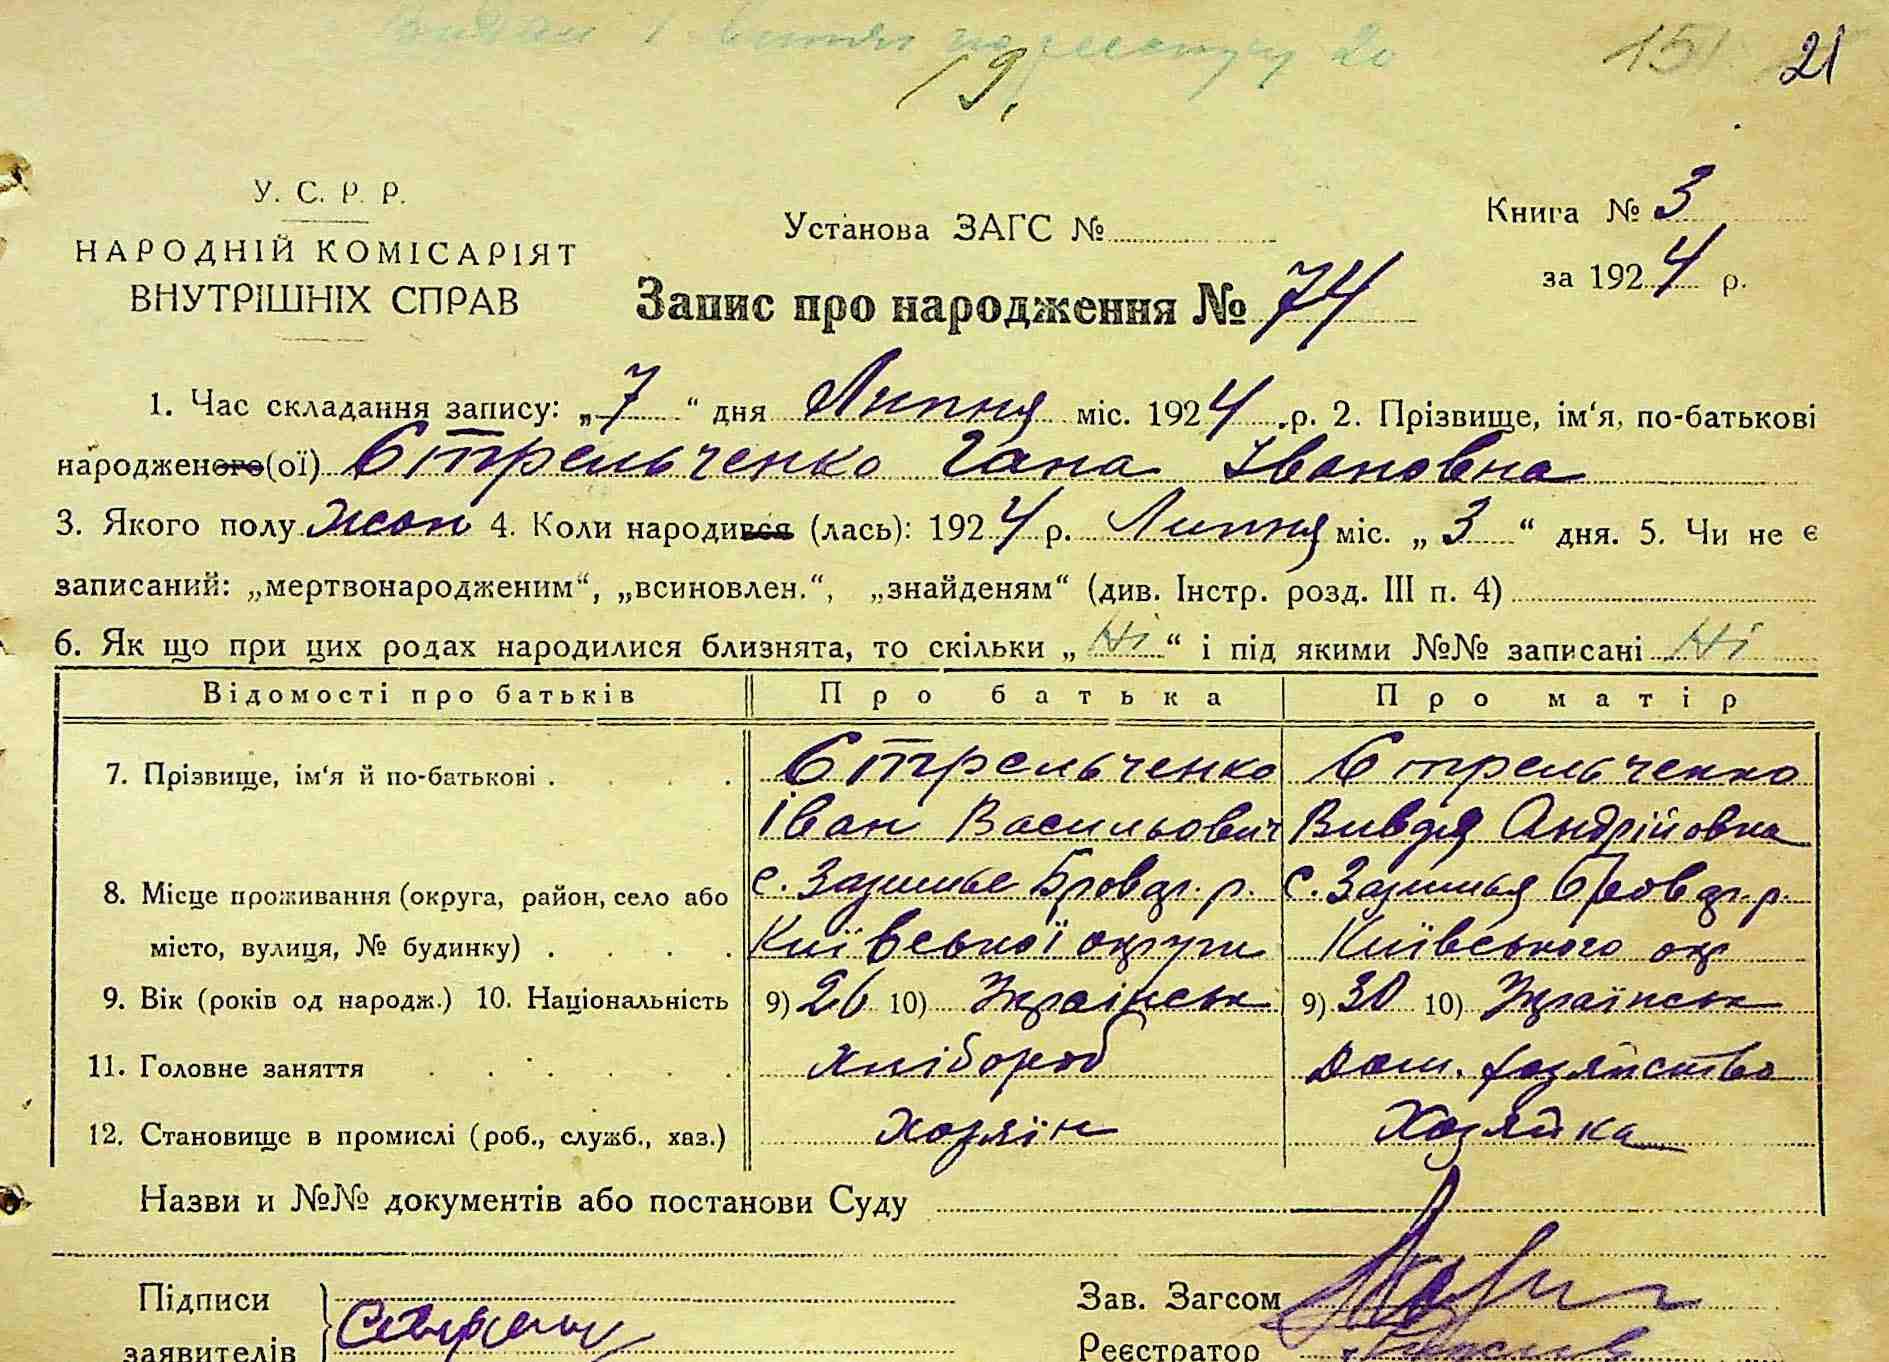 19.
21
У. С. Р. Р.
НАРОДНІЙ КОМІСАРІЯТ
ВНУТРІШНІХ СПРАВ
Установа ЗАГС №
Книга № 3
за 1924 р.
Запис про народження № 74
1. Час складання запису: „7“ дня Липня міс. 1924 р. 2. Прізвище, ім‘я, по-батькові
народженого(ої) Стрельченко Гана Івановна
3. Якого полу жон 4. Коли народився (лась): 1924 р. Липня міс. „3“ дня. 5. Чи не є
записаний: „мертвонародженим“, „всиновлен.“, „знайденям“ (див. Інстр. розд. III п. 4)
6. Як що при цих родах народилися близнята, то скільки „Ні“ і під якими №№ записані Ні
Відомості про батьків Про батька Про матір
7. Прізвище, ім‘я й по-батькові . . . . Стрельченко Стрельченко
Іван Васильович Вивдя Андрійовна
8. Місце проживання (округа, район, село або с. Зазимье Бровар. р. с. Зазимья Бровар. р.
місто, вулиця, № будинку) . . . . Київської округи Київського ок
9. Вік (років од народж.) 10. Національність 9) 26 10) Українськ 9) 30 10) Українськ
11. Головне заняття . . . . . . Хлібороб Дом. хозяйство
12. Становище в промислі (роб., служб., хаз.) Хозяїн Хозяйка
Назви и №№ документів або постанови Суду
Підписи
заявителів
Зав. Загсом
Реєстратор